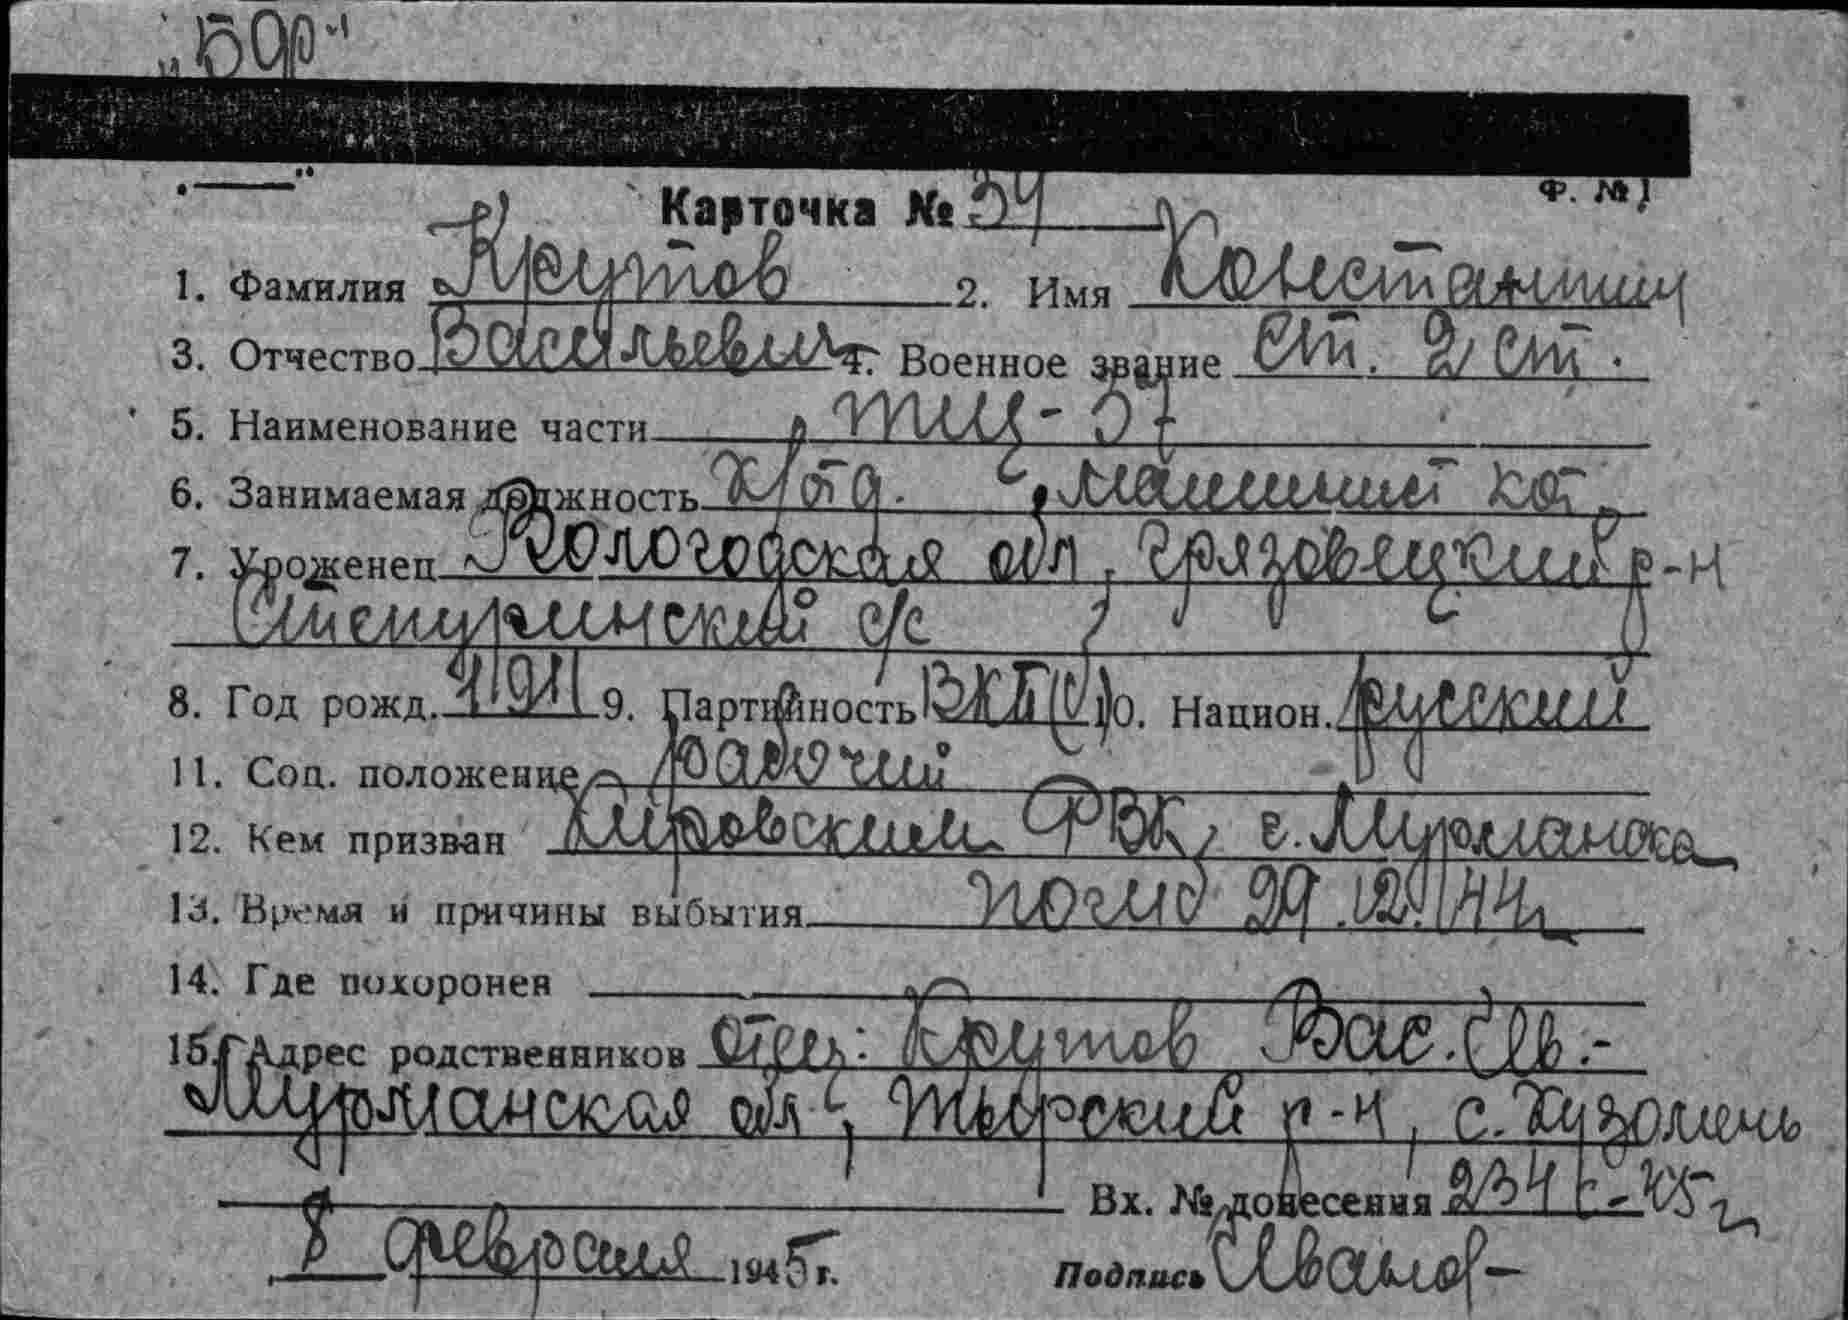 „БФ"
Карточка № 34
Ф. № 1
1. Фамилия Крутов 2. Имя Константин
3. Отчество Васильевич 4. Военное звание ст. 2 ст.
5. Наименование части ТЩ-37
6. Занимаемая должность к/отд. машинист кот.
7. Уроженец Вологодская обл., Грязовецкий р-н
Степуринский с/с
8. Год рожд. 1911 9. Партийность ВКП(б) 10. Национ. русский
11. Соц. положение рабочий
12. Кем призван Кировским РВК, г. Мурманска
13. Время и причины выбытия погиб 29.12.44г
14. Где похоронен
15. Адрес родственников отец: Крутов Вас. Ив.-
Мурманская обл., Терский р-н, с. Кузомень
Вх. № донесения 234 с-45г
8 февраля 1945 г. Подпись Иванов